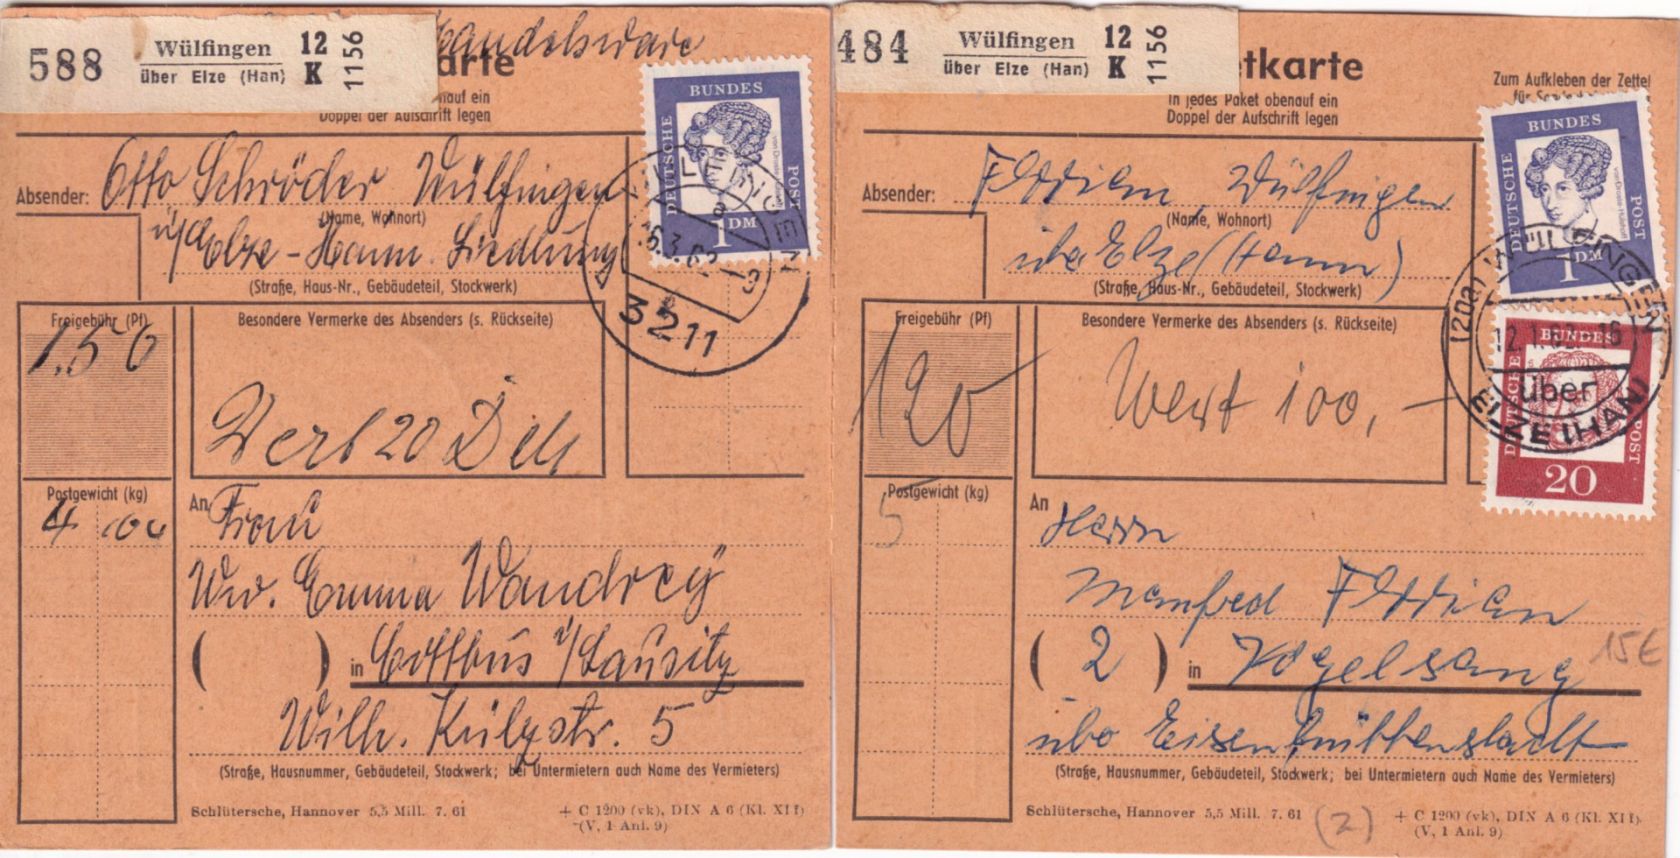 588
Wülfingen
über Elze (Han)
12
K
1156
Handelsware
arte
nauf ein
Doppel der Aufschrift legen
BUNDES
DEUTSCHE
POST
1 DM
Absender: Otto Schröder Wülfingen
(Name, Wohnort)
ü/Elze - Hann. Siedlung
(Straße, Haus-Nr., Gebäudeteil, Stockwerk)
3211
Freigebühr (Pf)
1.50
Besondere Vermerke des Absenders (s. Rückseite)
Wert 20 DM
Postgewicht (kg)
4
An Frau
Ww. Emma Wandrey
( ) in Cottbus i/Lausitz
Wilh. Külzstr. 5
(Straße, Hausnummer, Gebäudeteil, Stockwerk; bei Untermietern auch Name des Vermieters)
Schlütersche, Hannover 5,5 Mill. 7. 61
+ C 1200 (vk), DIN A 6 (Kl. XII)
(V, 1 Anl. 9)
484
Wülfingen
über Elze (Han)
12
K
1156
etkarte
In jedes Paket obenauf ein
Doppel der Aufschrift legen
Zum Aufkleben der Zettel
BUNDES
DEUTSCHE
POST
von Droste-Hülshoff
1 DM
Absender: Florian, Wülfingen
(Name, Wohnort)
über Elze (Hann)
(Straße, Haus-Nr., Gebäudeteil, Stockwerk)
(20a) WÜLFINGEN
über
ELZE (HAN)
BUNDES
DEUTSCHE
POST
20
Freigebühr (Pf)
120
Besondere Vermerke des Absenders (s. Rückseite)
Wert 100,—
Postgewicht (kg)
5
An Herrn
Manfred Florian
( 2 ) in Vogelsang
15€
über Eisenhüttenstadt
(Straße, Hausnummer, Gebäudeteil, Stockwerk; bei Untermietern auch Name des Vermieters)
Schlütersche, Hannover 5,5 Mill. 7. 61
(2)
+ C 1200 (vk), DIN A 6 (Kl. XII)
(V, 1 Anl. 9)